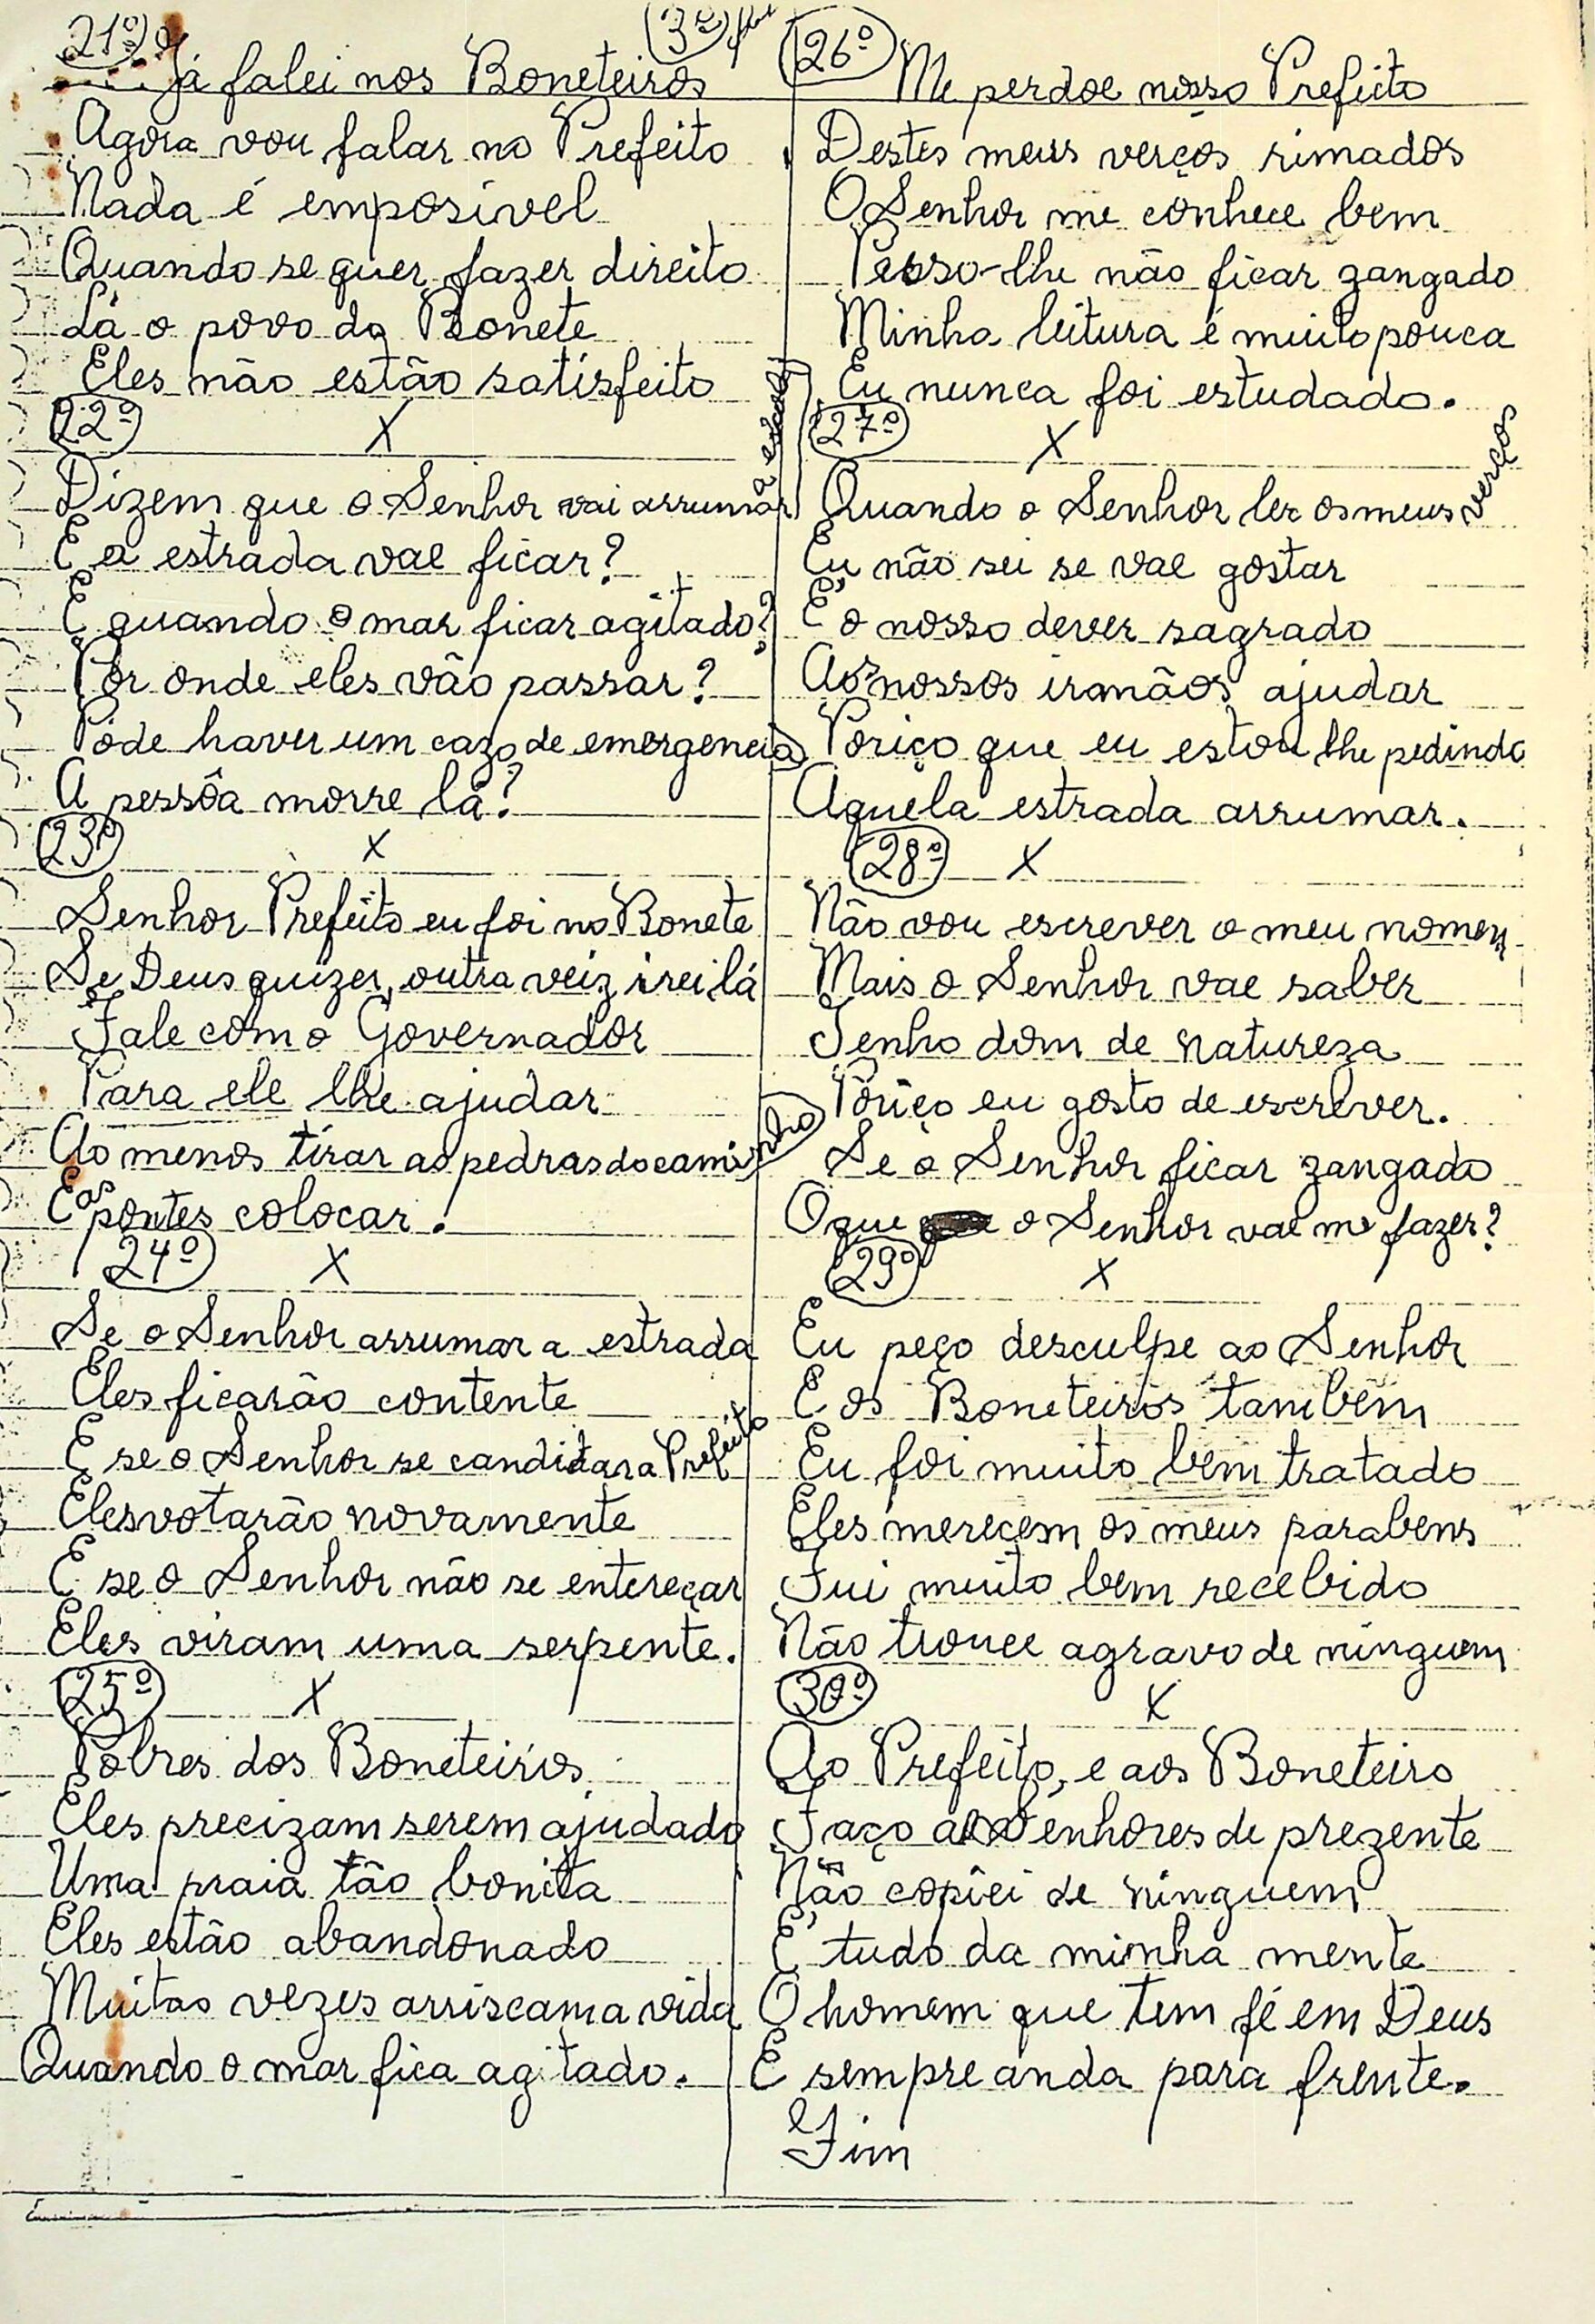 3º
21º
Já falei nos Boneteiros
Agora vou falar no Prefeito
Nada é emposivel
Quando se quer fazer direito
Lá o povo do Bonete
Eles não estão satisfeito
22º X
Dizem que o Senhor vai arrumar a escada
E a estrada vae ficar?
E quando o mar ficar agitado?
Por onde eles vão passar?
Póde haver um cazo de emergencia
A pessôa morre lá?
23º X
Senhor Prefeito eu foi no Bonete
Se Deus quizer, outra veiz irei lá
Fale com o Governador
Para ele lhe ajudar
Ao menos tirar as pedras do caminho
E as pontes colocar.
24º X
Se o Senhor arrumar a estrada
Eles ficarão contente
E se o Senhor se candidar a Prefeito
Eles votarão novamente
E se o Senhor não se entereçar
Eles viram uma serpente.
25º X
Pobres dos Boneteiros
Eles precizam serem ajudado
Uma praia tão bonita
Eles estão abandonado
Muitas vezes arriscam a vida
Quando o mar fica agitado.
26º
Me perdoe nosso Prefeito
Destes meus verços rimados
O Senhor me conhece bem
Pesso-lhe não ficar zangado
Minha leitura é muito pouca
Eu nunca foi estudado.
27º X
Quando o Senhor ler os meus verços
Eu não sei se vae gostar
É o nosso dever sagrado
Aos nossos irmãos ajudar
Poriço que eu estou lhe pedindo
Aquela estrada arrumar.
28º X
Não vou escrever o meu nomen
Mais o Senhor vae saber
Tenho dom de natureza
Poriço eu gosto de escrever.
Se o Senhor ficar zangado
O que o Senhor vae me fazer?
29º X
Eu peço desculpe ao Senhor
E os Boneteiros também
Eu foi muito bem tratado
Eles merecem os meus parabens
Fui muito bem recebido
Não trouce agravo de ninguem
30º X
Ao Prefeito, e aos Boneteiro
Faço aos Senhores de prezente
Não copiei de ninguem
É tudo da minha mente
O homem que tem fé em Deus
E sempre anda para frente.
Fim